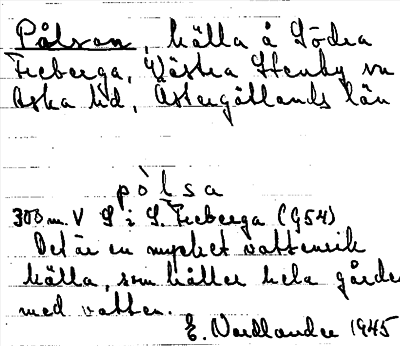 Pålsan, källa å Södra
Freberga, Västra Stenby sn
Aska hd, Östergötlands län
pò̀lsa
300 m. V S i S. Freberga (G54)
Det är en mycket vattenrik
källa, som håller hela gården
med vatten.
E. Nordlander 1945